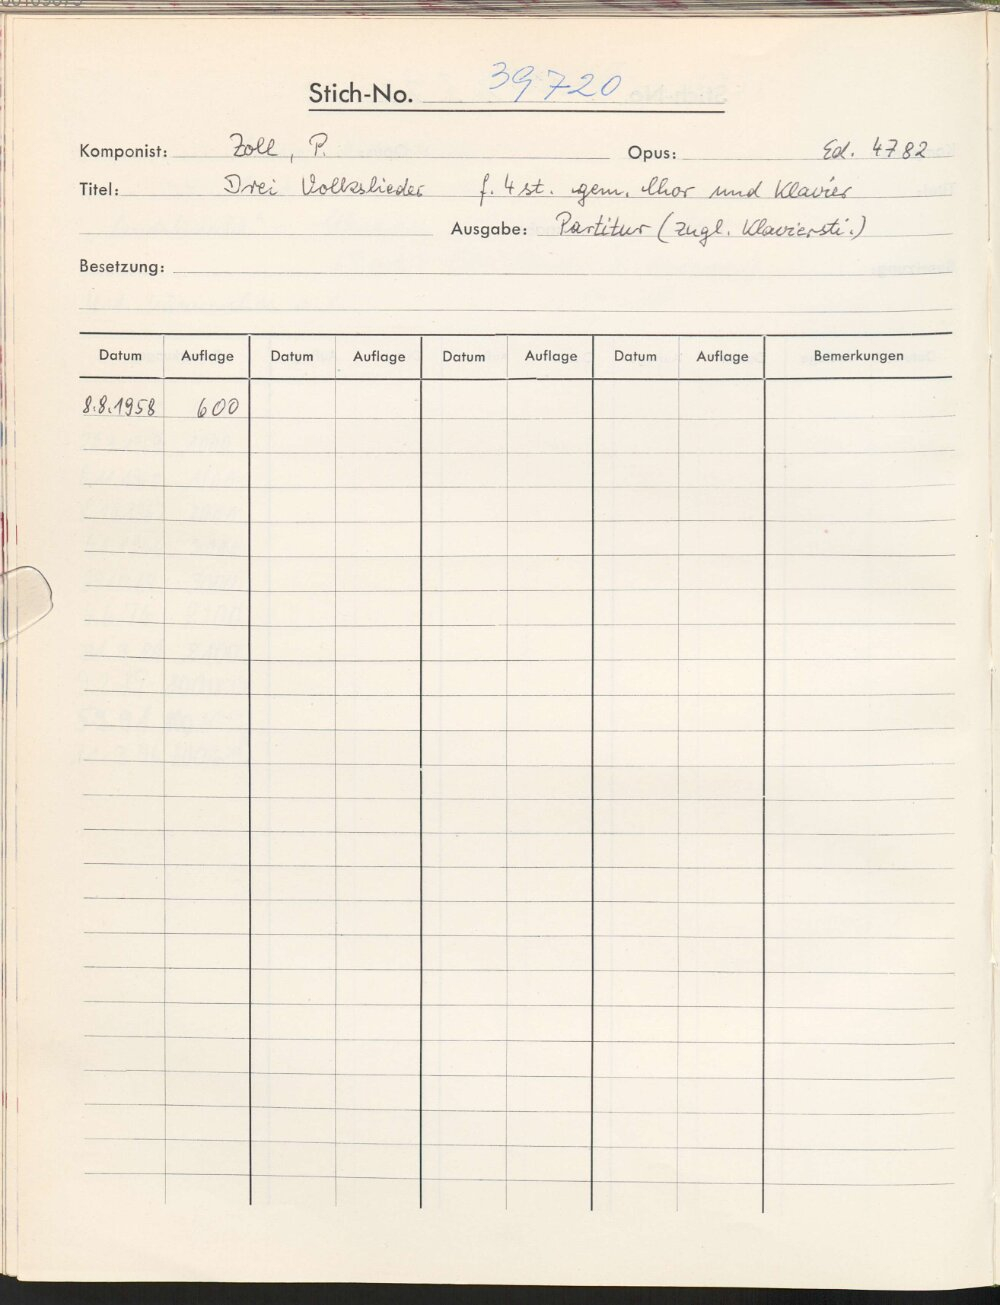 Stich-No. 39720
Komponist: Zoll, P. Opus: Ed. 4782
Titel: Drei Volkslieder f. 4 st. gem. Chor und Klavier
Ausgabe: Partitur (zugl. Klavierst.)
Besetzung:
Datum Auflage Datum Auflage Datum Auflage Datum Auflage Bemerkungen
8.8.1958 600